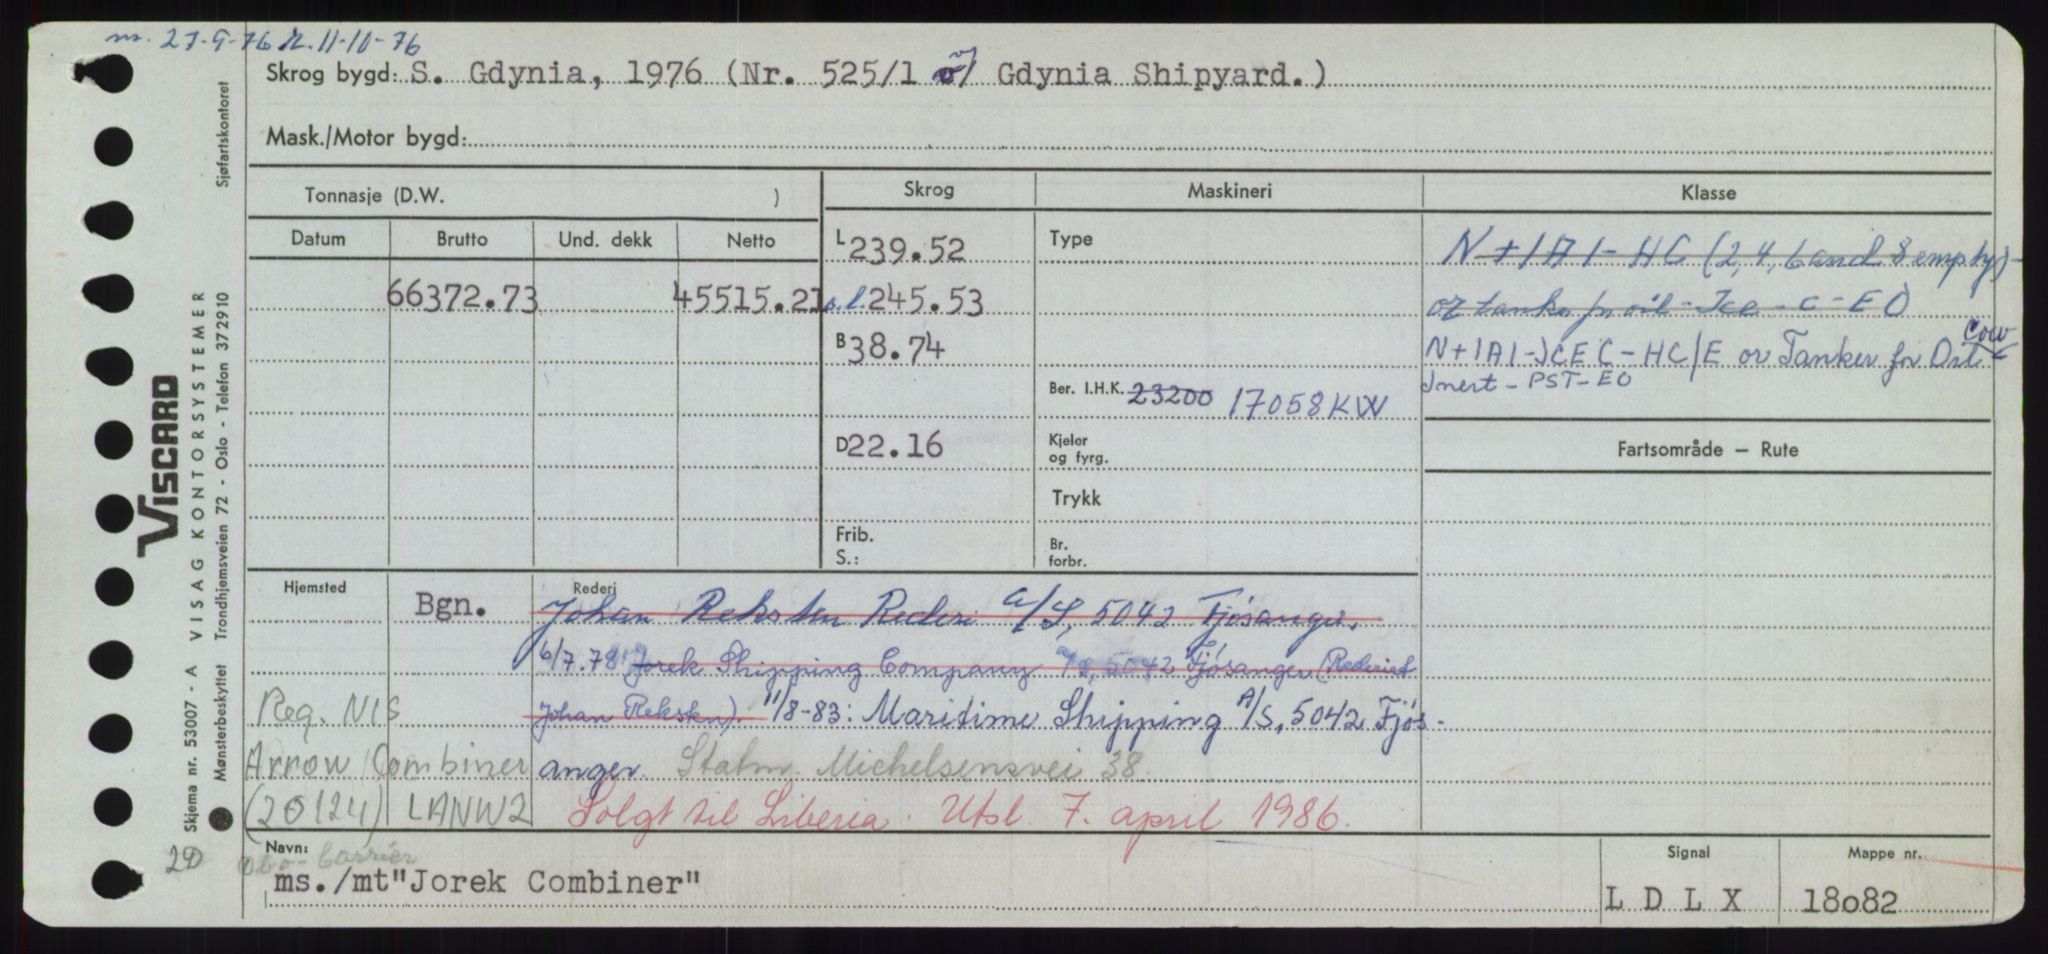 m. 27-9-76 R. 11-10-76
Skrog bygd: S. Gdynia, 1976 (Nr. 525/1 v/ Gdynia Shipyard.)
Mask./Motor bygd:
Tonnasje (D.W. )
Skrog
Maskineri
Klasse
Datum
Brutto
Und. dekk
Netto
66372.73
45515.21
L 239.52
o.l. 245.53
B 38.74
D 22.16
Frib.
S.:
Type
Ber. I.H.K. 23200 17058 KW
Kjeler
og fyrg.
Trykk
Br.
forbr.
N + 1A1 - HC (2, 4, 6 and 8 empty) -
or tanks for oil - Ice - C - EO
N + 1A1 - ICE C - HC/E or Tanker for Oil Cow
Inert - PST - EO
Fartsområde — Rute
Hjemsted
Bgn.
Rederi
Johan Reksten Rederi A/S, 5042 Fjøsanger.
6/7.78 Jorek Shipping Company A/S, 5042 Fjøsanger (Rederiet
Johan Reksten). 11/8-83: Maritime Shipping A/S, 5042 Fjøs-
anger. Statm. Michelsensvei 38.
Solgt til Liberia. Utsl. 7. april 1986.
Reg. NIS
Arrow Combiner
(20124) LANW2
2D Obo-Carrier
Navn:
ms./mt"Jorek Combiner"
Signal
L D L X
Mappe nr.
18o82
VISCARD
Skjema nr. 53007 - A VISAG KONTORSYSTEMER
Mønsterbeskyttet Trondhjemsveien 72 - Oslo - Telefon 372910 Sjøfartskontoret